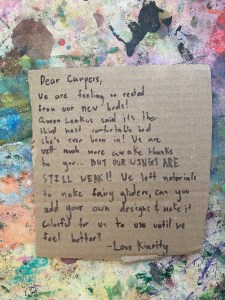 Dear Campers,
We are feeling so rested
from our new beds!
Queen said its the
third most comfortable bed
she's ever been in! We are
much more awake thanks
to you... BUT OUR WINGS ARE
STILL WEAK!! We left materials
to make fairy gliders, can you
add your own designs & make it
colorful for us to use until we
feel better?
-Love